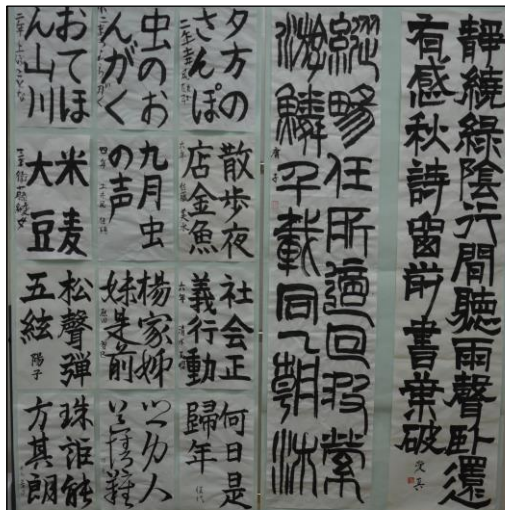 靜繞綠陰行間聽雨聲臥還
有感秋詩窗前書葉破
縱暢任所適回波縈
游鱗千載同一朝沐
夕方の
さんぽ
虫のお
んがく
おてほ
ん山川
散歩夜
店金魚
九月虫
の声
米麦
大豆
社会正
義行動
楊家姉
妹是前
松聲弾
五絃
陽子
何日是
歸年
珠詎能
方其朗